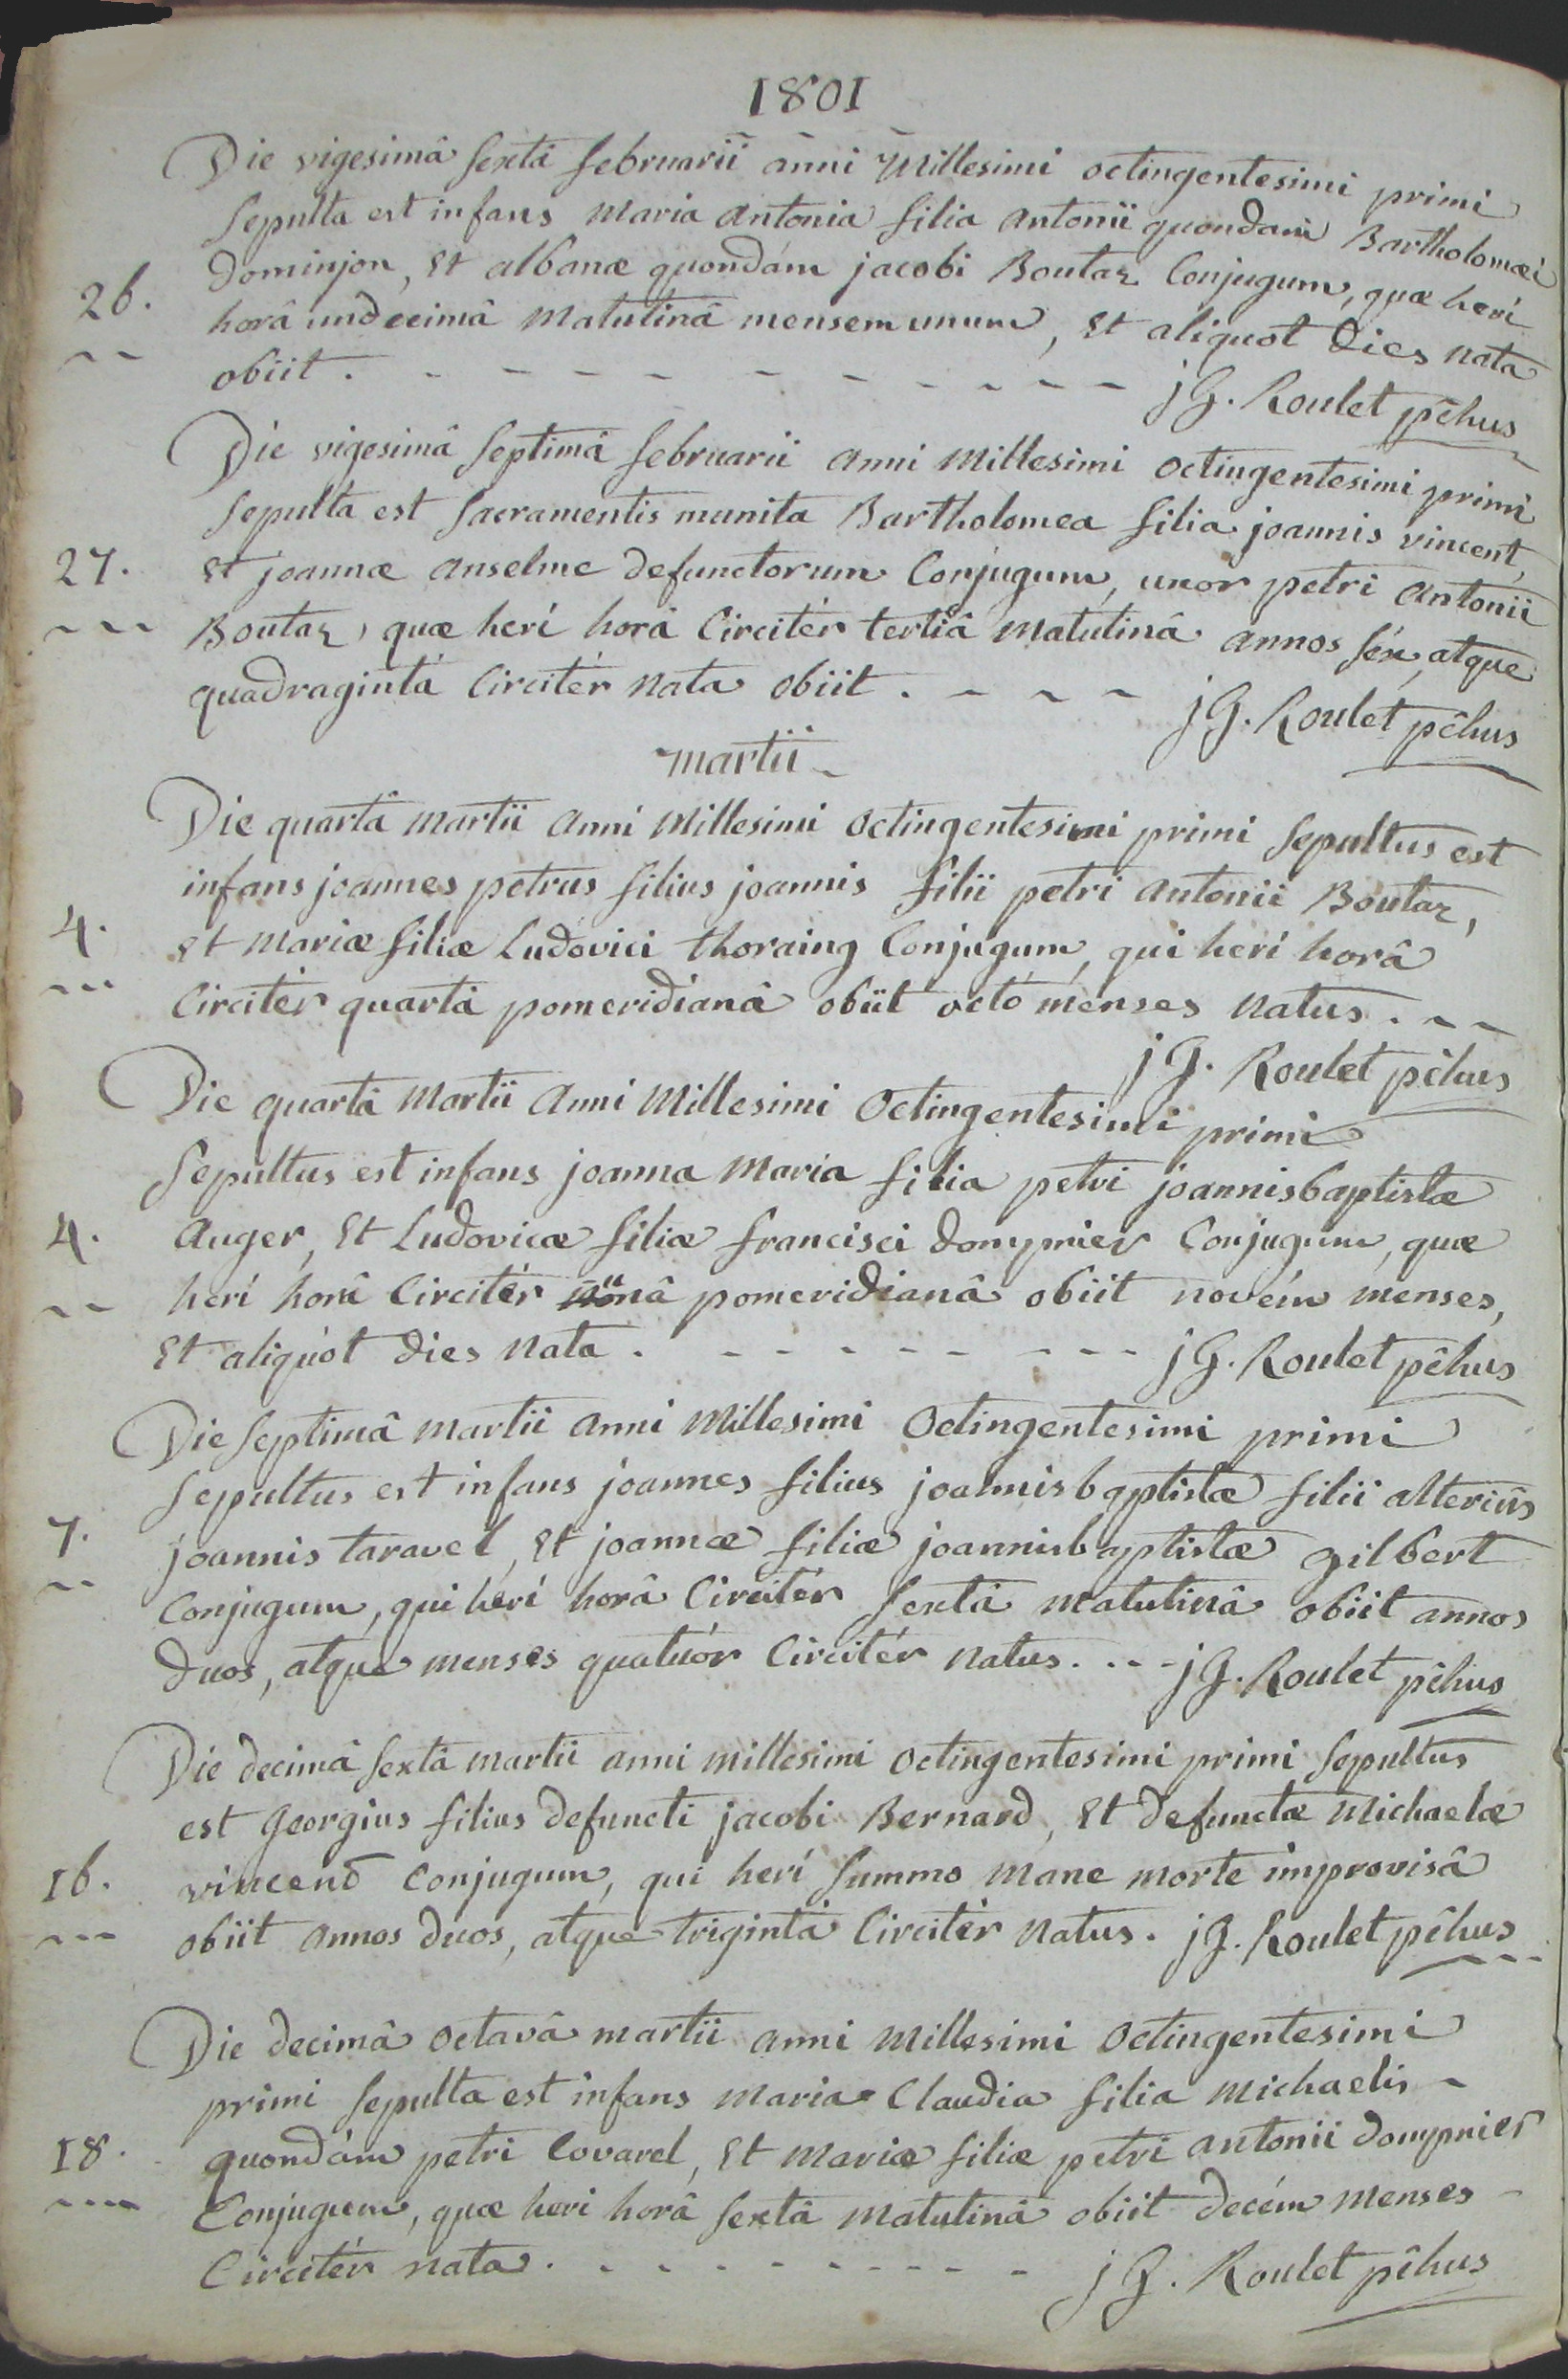 1801
Die vigesimâ sextâ februarii anni Millesimi octingentesimi primi
Sepulta est infans Maria Antonia filia Antonii quondam Bartholomæi
26.
Dominjon, Et albanæ quondám jacobi Boutaz Conjugum, quæ herí
horâ undecimâ Matutinâ mensem unum, Et aliquot Dies nata
obiit. - - - - - - - - - - jG. Roulet pchus
Die vigesimâ Septimâ februarii anni Millesimi octingentesimi primi
Sepulta est Sacramentis munita Bartholomea filia joannis vincent,
27.
Et joannæ anselme defunctorum Conjugum, uxor petri Antonii
Boutaz, quæ herí horâ Circitér tertiâ Matutinâ annos séx, atque
quadragintá Circitér nata obiit. - - - jG. Roulet pĉhus
martii
Die quartâ martii anni Millesimi octingentesimi primi Sepultus est
infans joannes petrus filius joannis filii petri antonii Boutaz,
4.
Et Mariæ filiæ Ludovici thoraing Conjugum, qui herí horâ
Circitér quartâ pomeridianâ obiit octó menses natus. - -
jG. Roulet pĉhus
Die quartâ Martii Anni Millesimi Octingentesimi primi
Sepultus est infans joanna Maria filia petri joannisbaptistæ
4.
Auger, Et Ludovicæ filiæ francisci dompnier Conjugum, quæ
herí horâ Circitér nonâ pomeridianâ obiit novém menses,
Et aliquót dies nata. - - - - - - - - jG. Roulet pĉhus
Die Septimâ martii anni Millesimi Octingentesimi primi
Sepultus est infans joannes filius joannisbaptistæ filii alteriûs
7.
joannis taravel, Et joannæ filiæ joannisbaptistæ gilbert
Conjugum, qui herí horâ Circitér Sextâ matutinâ obiit annos
duos, atque menses quatuór Circitér natus. - - - jG. Roulet pĉhus
Die decimâ Sextâ martii anni millesimi octingentesimi primi Sepultus
est Georgius filius defuncti jacobi Bernard, Et defunctæ Michaelæ
16.
vincend Conjugum, qui herí Summo mane morte improvisâ
obiit annos duos, atque trigintá Circitér natus. jG. Roulet pĉhus
Die decimâ octavâ martii anni Millesimi Octingentesimi
primi Sepulta est infans Maria Claudia filia Michaelis -
18.
quondám petri Covarel, Et Mariæ filiæ petri antonii dompnier
Conjugum, quæ heri horâ Sextâ Matutinâ obiit decém menses -
Circitér nata. - - - - - - - - - jG. Roulet pĉhus